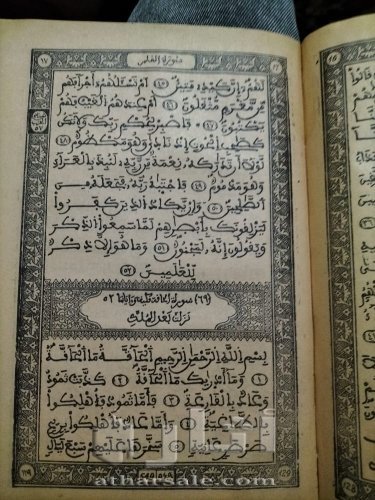 ١٧ سورة القلم ١٧
لَهُمُۥٓ إِنَّ كَيْدِے مَتِينٌ ٤٥ أَمْ تَسْـَٔلُهُمُۥٓ أَجْراً فَهُم
مِّن مَّغْرَمٍ مُّثْقَلُونَ ٤٦ أَمْ عِندَهُمُ الْغَيْبُ فَهُمْ
يَكْتُبُونَ ٤٧ فَاصْبِرْ لِحُكْمِ رَبِّكَ وَلَا تَكُن
كَصَٰحِبِ الْحُوتِ إِذْ نَادَىٰ وَهُوَ مَكْظُومٌ ٤٨
لَّوْلَآ أَن تَدَٰرَكَهُۥ نِعْمَةٌ مِّن رَّبِّهِۦ لَنُبِذَ بِالْعَرَآءِ
وَهُوَ مَذْمُومٌ ٤٩ فَاجْتَبَٰهُ رَبُّهُۥ فَجَعَلَهُۥ مِنَ
الصَّٰلِحِينَ ٥٠ وَإِن يَّكَادُ الذِينَ كَفَرُواْ
لَيَزْلِقُونَكَ بِأَبْصَٰرِهِمْ لَمَّا سَمِعُواْ الذِّكْرَ
وَيَقُولُونَ إِنَّهُۥ لَمَجْنُونٌ ٥١ وَمَا هُوَ إِلَّا ذِكْرٌ
لِّلْعَٰلَمِينَ ٥٢
(٦٩) سورة الحاقة مكية وآياتها ٥٢
نزلت بعد الملك
بِسْمِ اللَّهِ الرَّحْمَٰنِ الرَّحِيمِ الْحَآقَّةُ مَا الْحَآقَّةُ
١ وَمَآ أَدْرَيٰكَ مَا الْحَآقَّةُ ٢ كَذَّبَتْ ثَمُودُ
وَعَادٌ بِالْقَارِعَةِ ٣ فَأَمَّا ثَمُودُ فَأُهْلِكُواْ
بِالطَّاغِيَةِ ٤ وَأَمَّا عَادٌ فَأُهْلِكُواْ بِرِيحٍ
صَرْصَرٍ عَاتِيَةٍ ٥ سَخَّرَهَا عَلَيْهِمْ سَبْعَ لَيَالٍ
athatsale.com